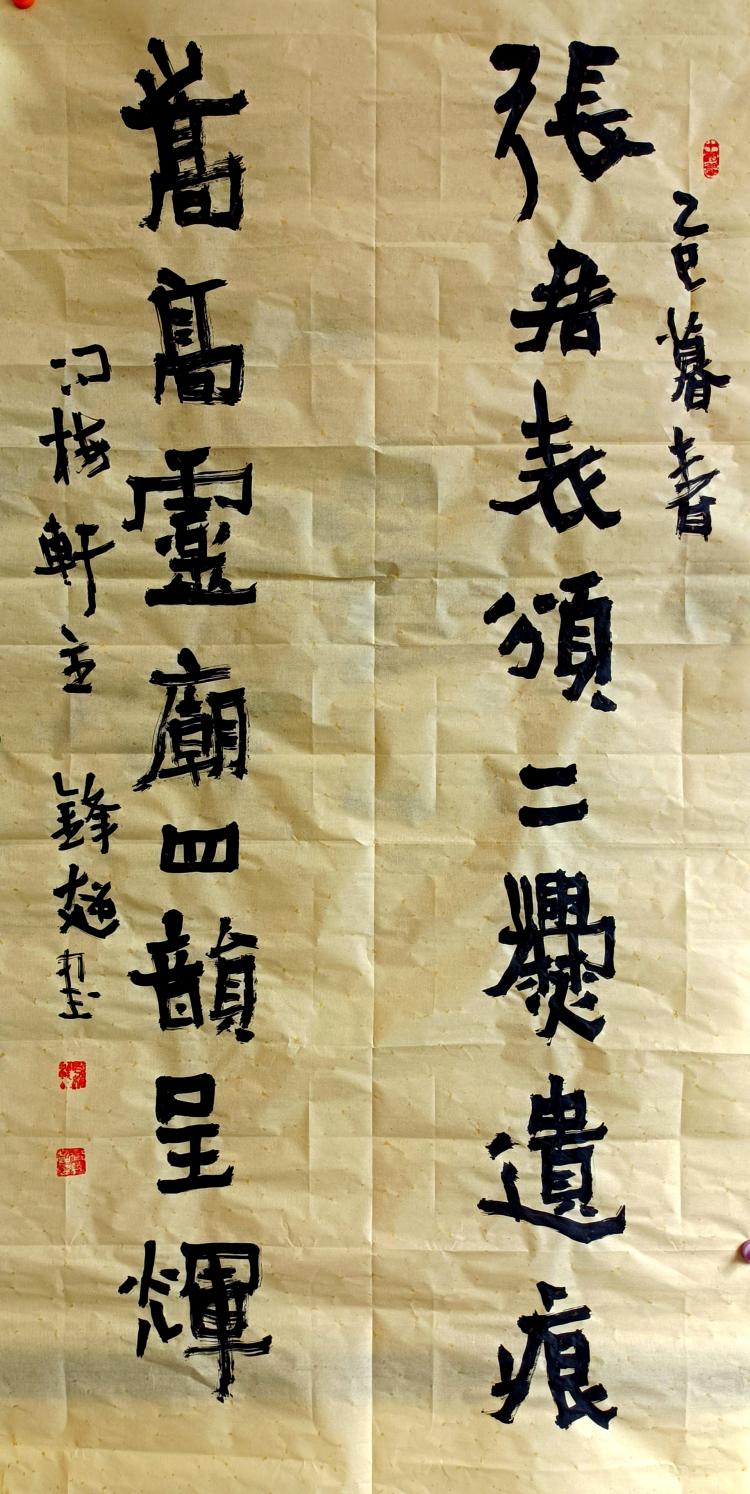 乙巳暮春
張君表頌二爨遺痕
嵩高靈廟四韻呈輝
梅軒主 鋒